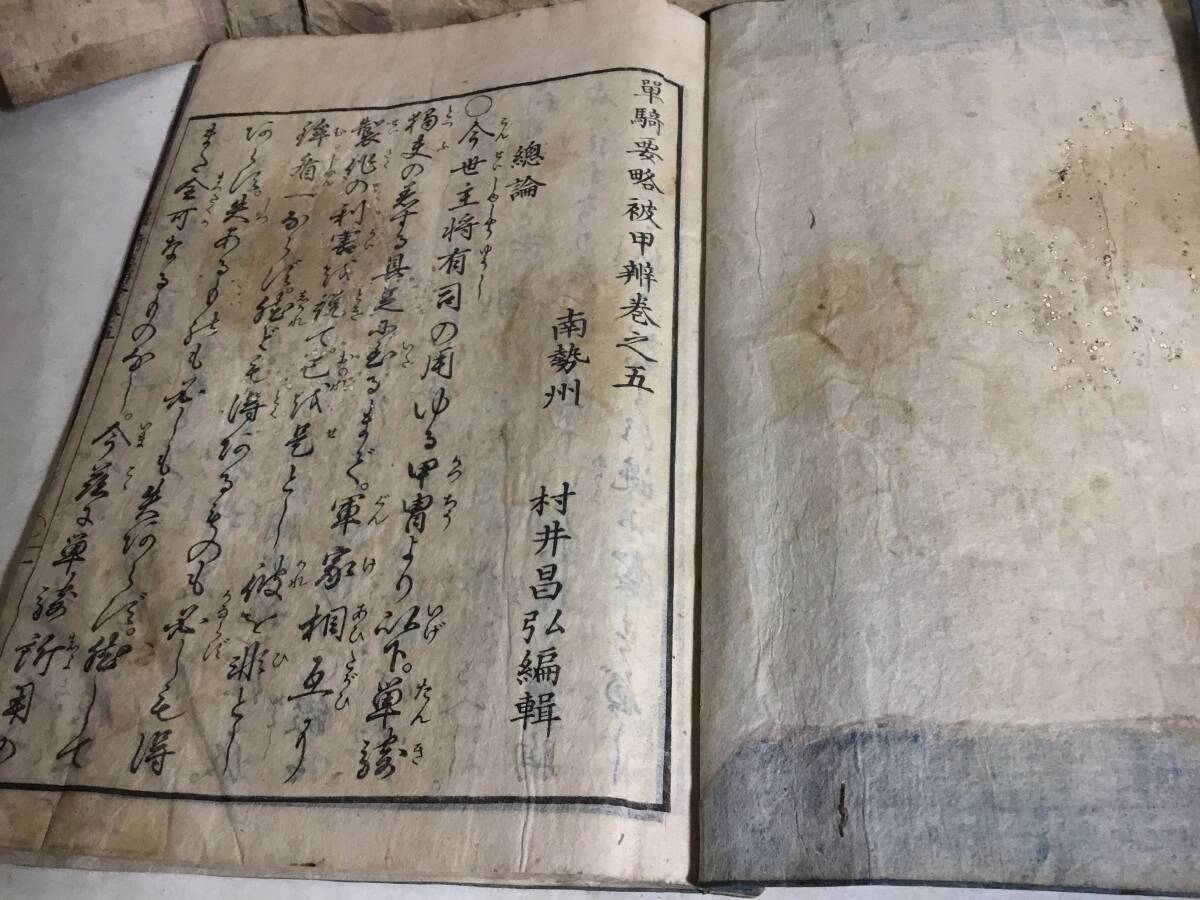 單騎要略被甲辨巻之五
南勢州 村井昌弘編輯
總論
○今世主将有司の用ゆる甲冑より以下。単騎
獨夫の着する具足に至るまで。軍家相互に
製作の利害を説て。己を是とし彼を非とし
鉾盾一ならず。然ども得あるものも必しも得
あらず。失あるものも必しも失あらず。然して
また全可なるものなし。今茲に単騎所用の